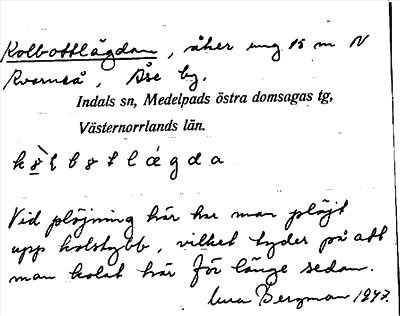 Kolbottlägdan, åker ung 15 m N
Kvarnså, Åse by.
Indals sn, Medelpads östra domsagas tg,
Västernorrlands län.
Vid plöjning här har man plöjt
upp kolstybb, vilket tyder på att
man kolat här för länge sedan.
Bergman 1943.